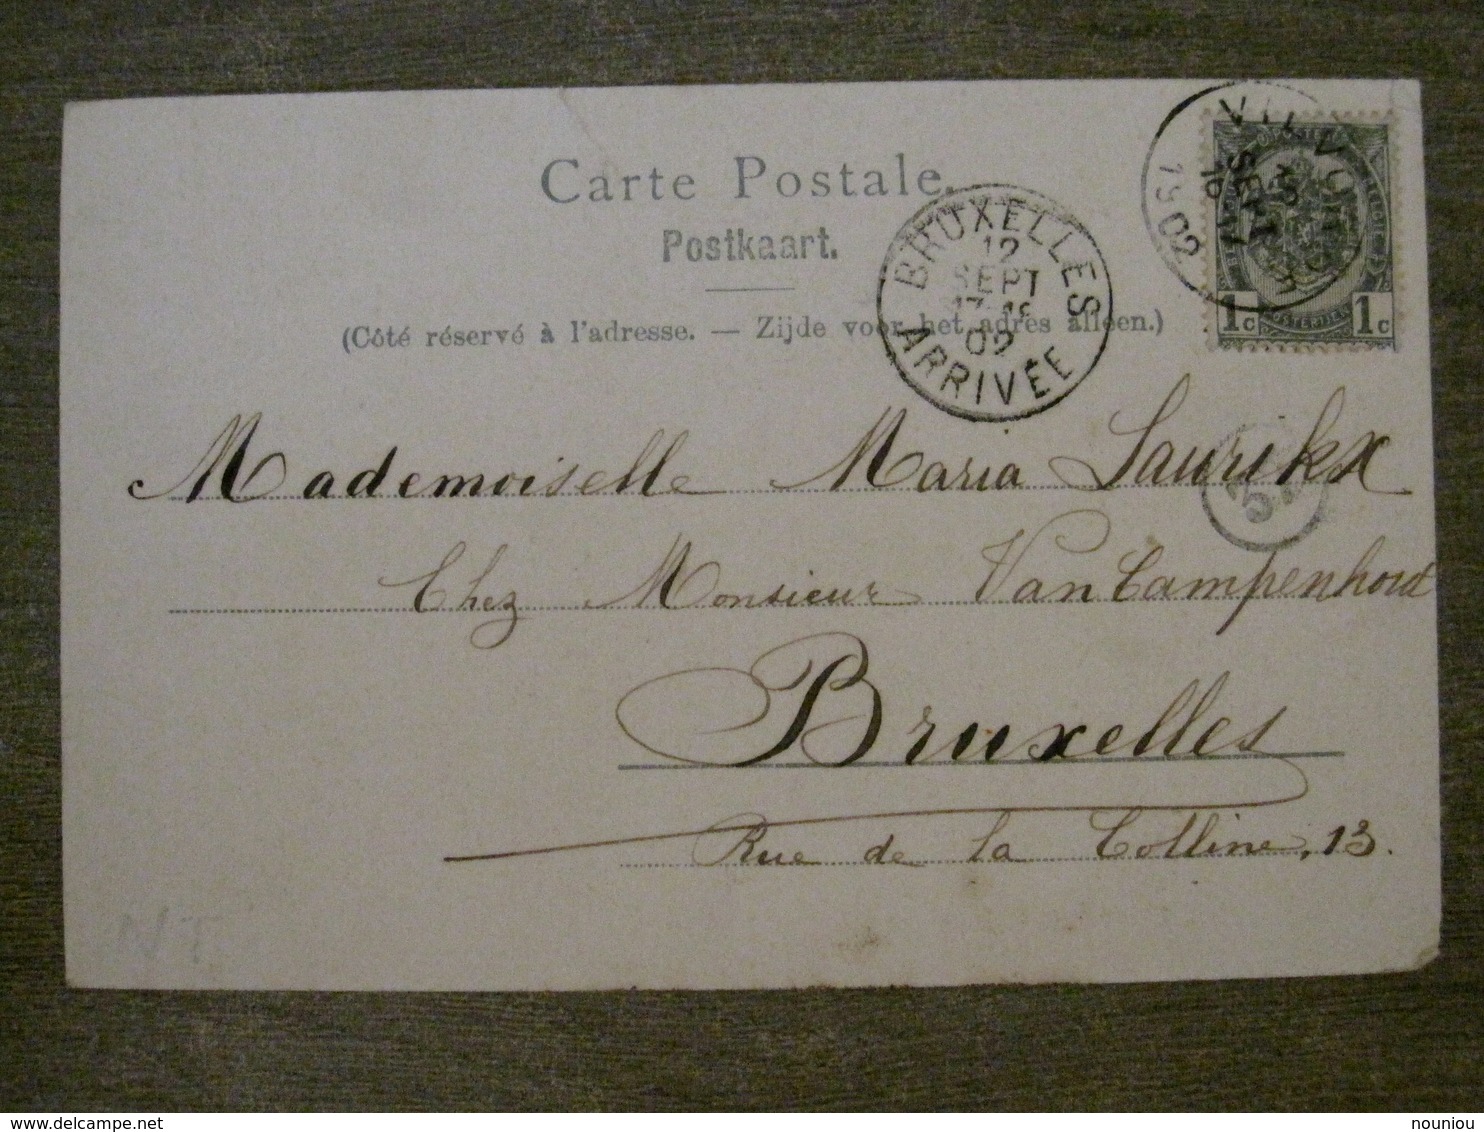 Carte Postale.
Postkaart.
(Côté réservé à l'adresse. — Zijde voor het adres alleen.)
BRUXELLES
12
SEPT
17-18
02
ARRIVÉE
VILVORDE
SEPT
1902
1c 1c
Mademoiselle Maria Laurikx
Chez Monsieur Van Campenhout
Bruxelles
Rue de la Colline, 13.
NT
nouniou